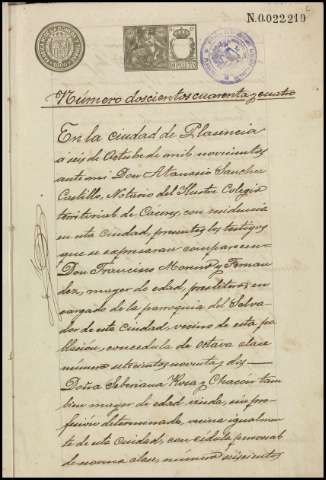 N.0.022.219
Número doscientos cuarenta y cuatro
En la ciudad de Plasencia
a seis de Octubre de mil novecientos
ante mi Don Atanasio Sanchez
Castillo, Notario del Ilustre Colegio
territorial de Cáceres, con residencia
en esta Ciudad, presentes los testigos
que se expresaran comparecen
Don Francisco Moreno y Fernan
dez, mayor de edad, presbitero, en
cargado de la parroquia del Salva
dor de esta Ciudad, vecino de esta po
blación, con cedula de octava clase
número seiscientos noventa y dos
Doña Severiana Rosa y Chacón tam
bien mayor de edad, viuda, sin pro
fesión determinada, vecina igualmen
te de esta Ciudad, con cédula personal
de novena clase, número seiscientos